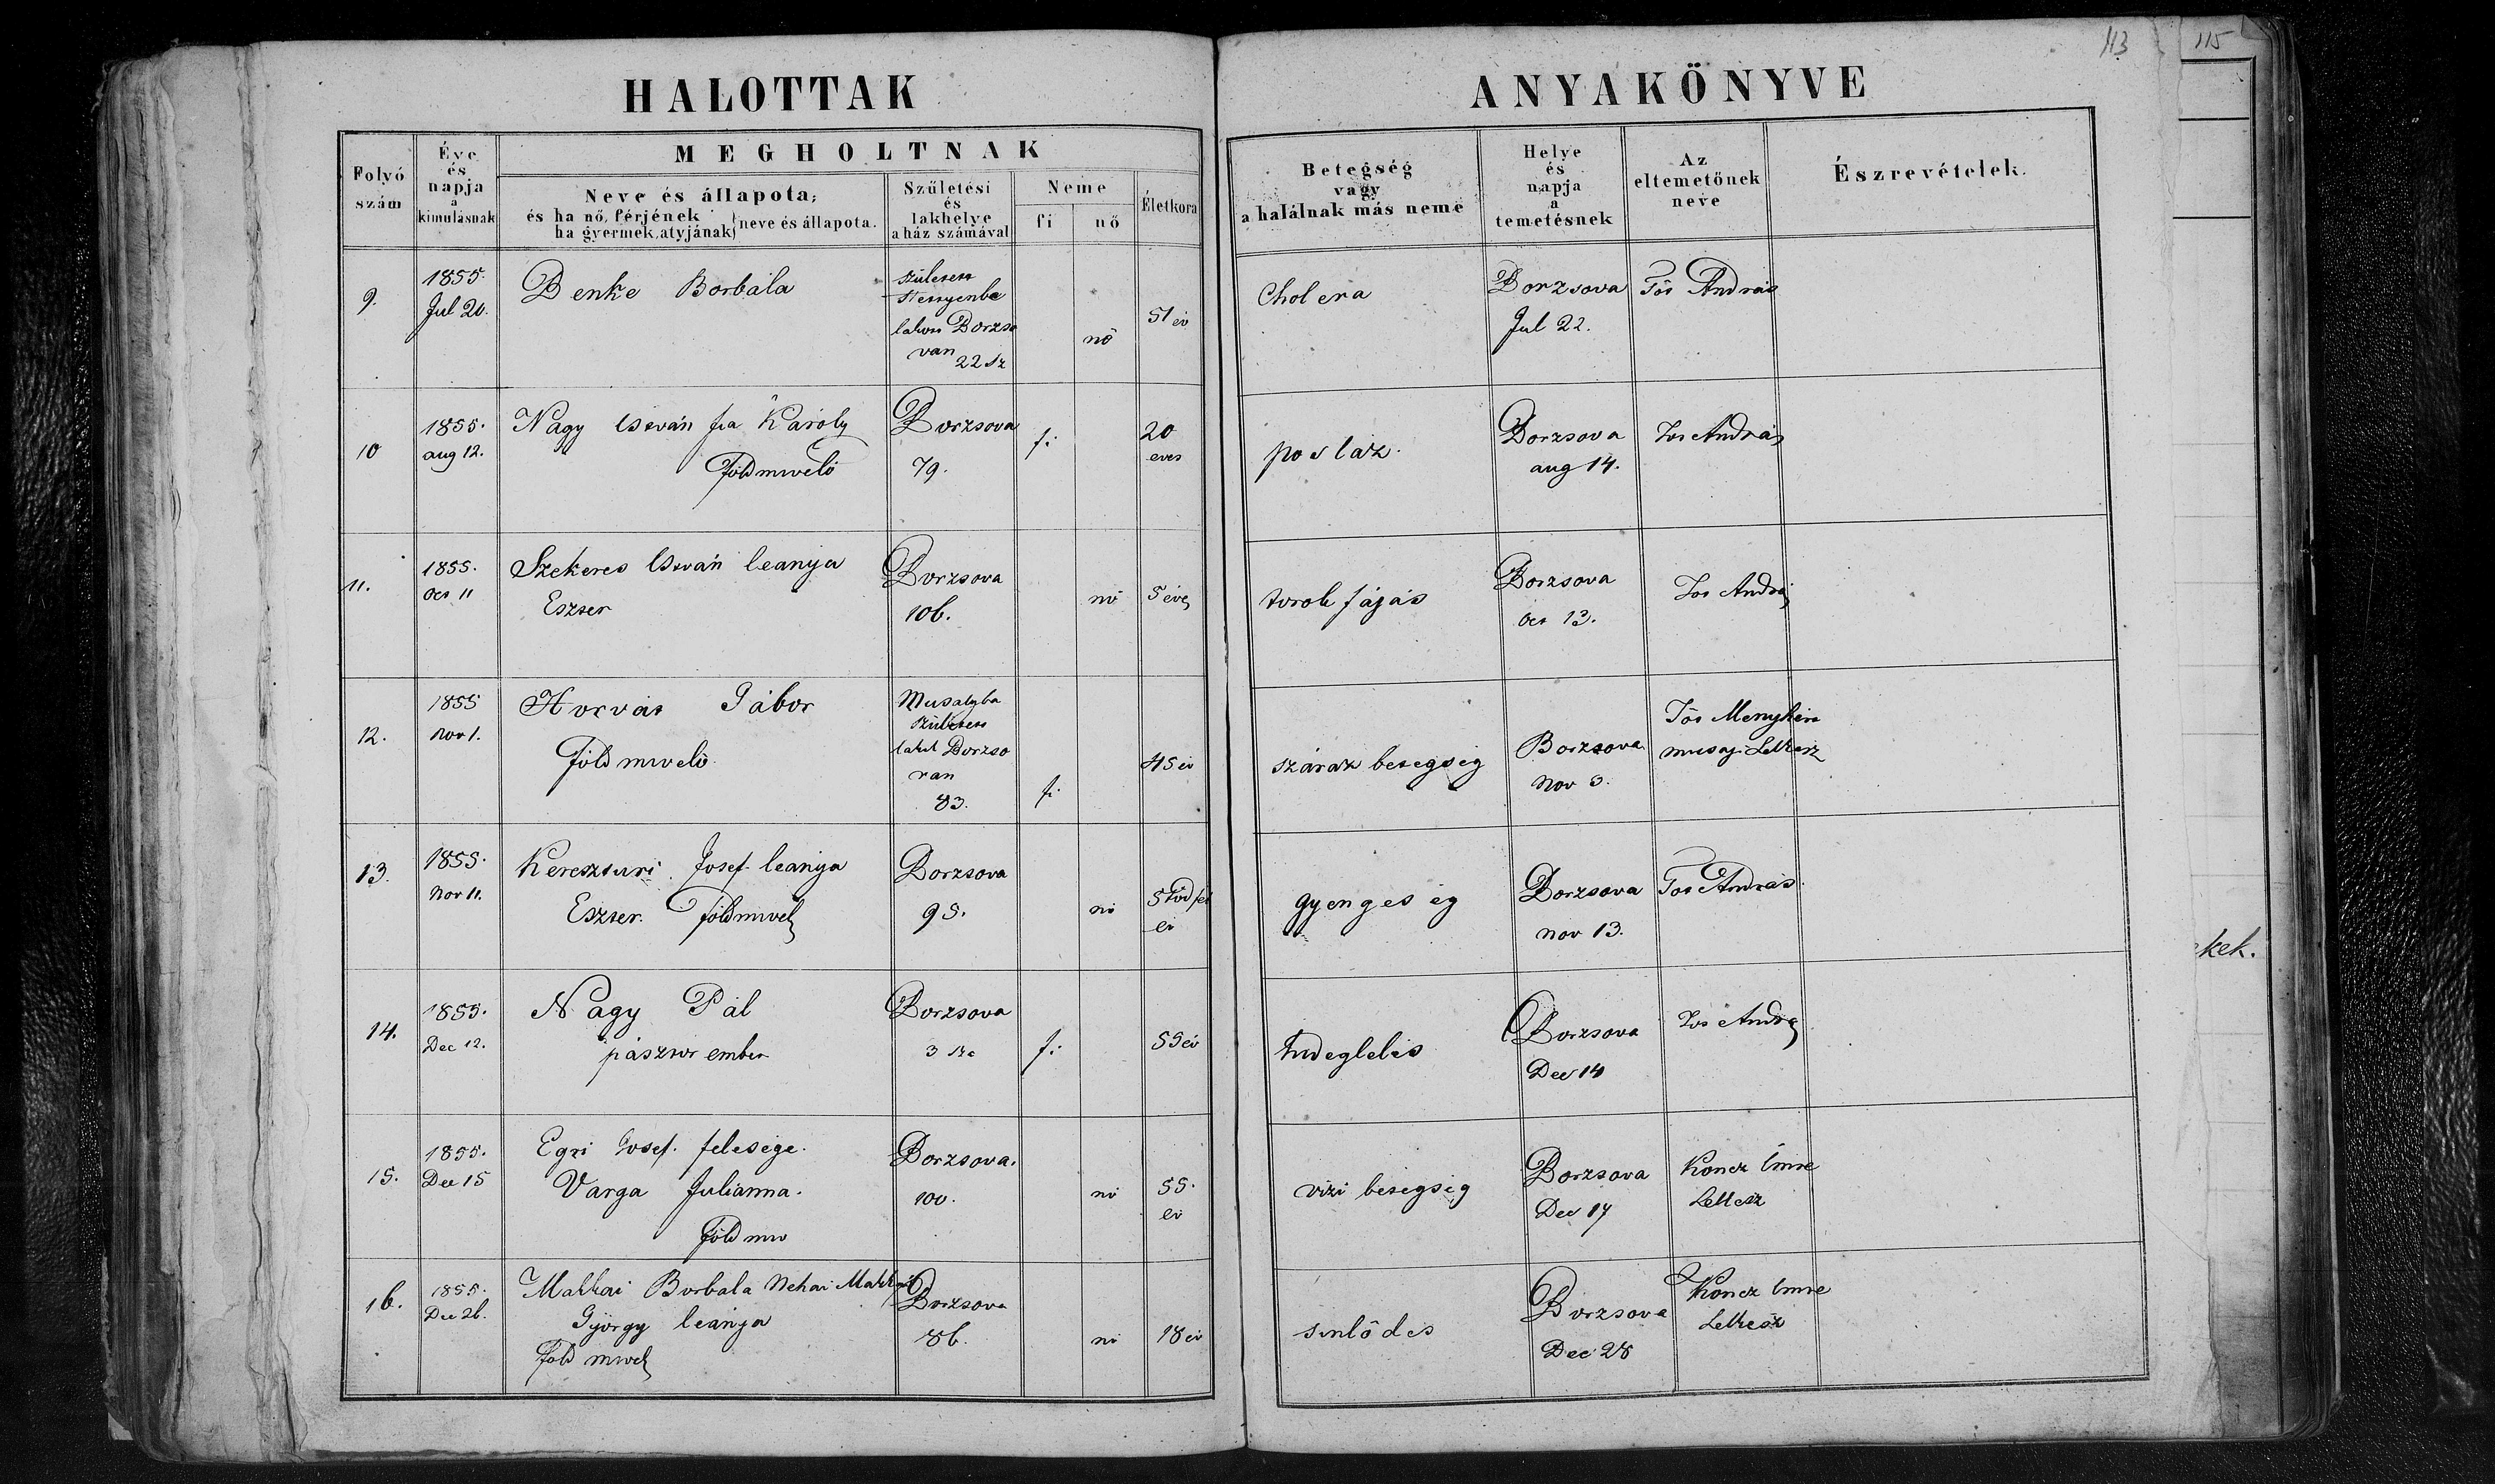 113
115
HALOTTAK
ANYAKÖNYVE
Folyó
szám
Éve
és
napja
a
kimulásnak
MEGHOLTNAK
Neve és állapota,
és ha nő, férjének
ha gyermek, atyjának} neve és állapota.
Születési
és
lakhelye
a ház számával
Neme
fi
nő
Életkora
Betegség
vagy
a halálnak más neme
Helye
és
napja
a
temetésnek
Az
eltemetőnek
neve
Észrevételek.
9.
1855.
Jul 20.
Benke Borbála
születess
lakoss Borzso
van 22 sz
nö
51 év
Cholera
Borzsova
Jul 22.
Tós András
10
1855.
aug 12.
Nagy István fia Károly
Földmivelö
Borzsova
79.
fi
20
eves
postaz.
Borzsova
aug 14.
Tos András
11.
1855.
Oct 11
Szekeres István leanya
Eszter
Borzsova
106.
nö
5 éves
torok fájás
Borzsova
Oct 13.
Tos András
12.
1855
Nov 1.
Horvát Gábor
Földmivelö
születess
lakik Borzso
van
83.
fi
45 év
száraz betegség
Borzsova
Nov 3.
Tós Menyhért
musaji Lelkész
13.
1855.
Nov 11.
Kereszturi Josef leanya
Eszter. földmivel
Borzsova
95.
nö
év
gyengeség
Borzsova
nov 13.
Tos András.
14.
1855.
Dec 12.
Nagy Pál
pásztor ember
Borzsova
3 sz
fi
55 év
Borzsova
Dec 14
Tos András
15.
1855.
Dec 15
Egri Josef. felesége.
Varga Julianna.
Földmiv
Borzsova.
100.
nö
55.
év
vizi betegség
Borzsova
Dec 17
Koncz Imre
Lelkész
16.
1855.
Dec 26.
Makkai Borbala Nehai Makkai
György leánya
föld mivel
Borzsova
86.
nö
18 év
sinlödes
Borzsova
Dec 28
Koncz Imre
Lelkész
kek.